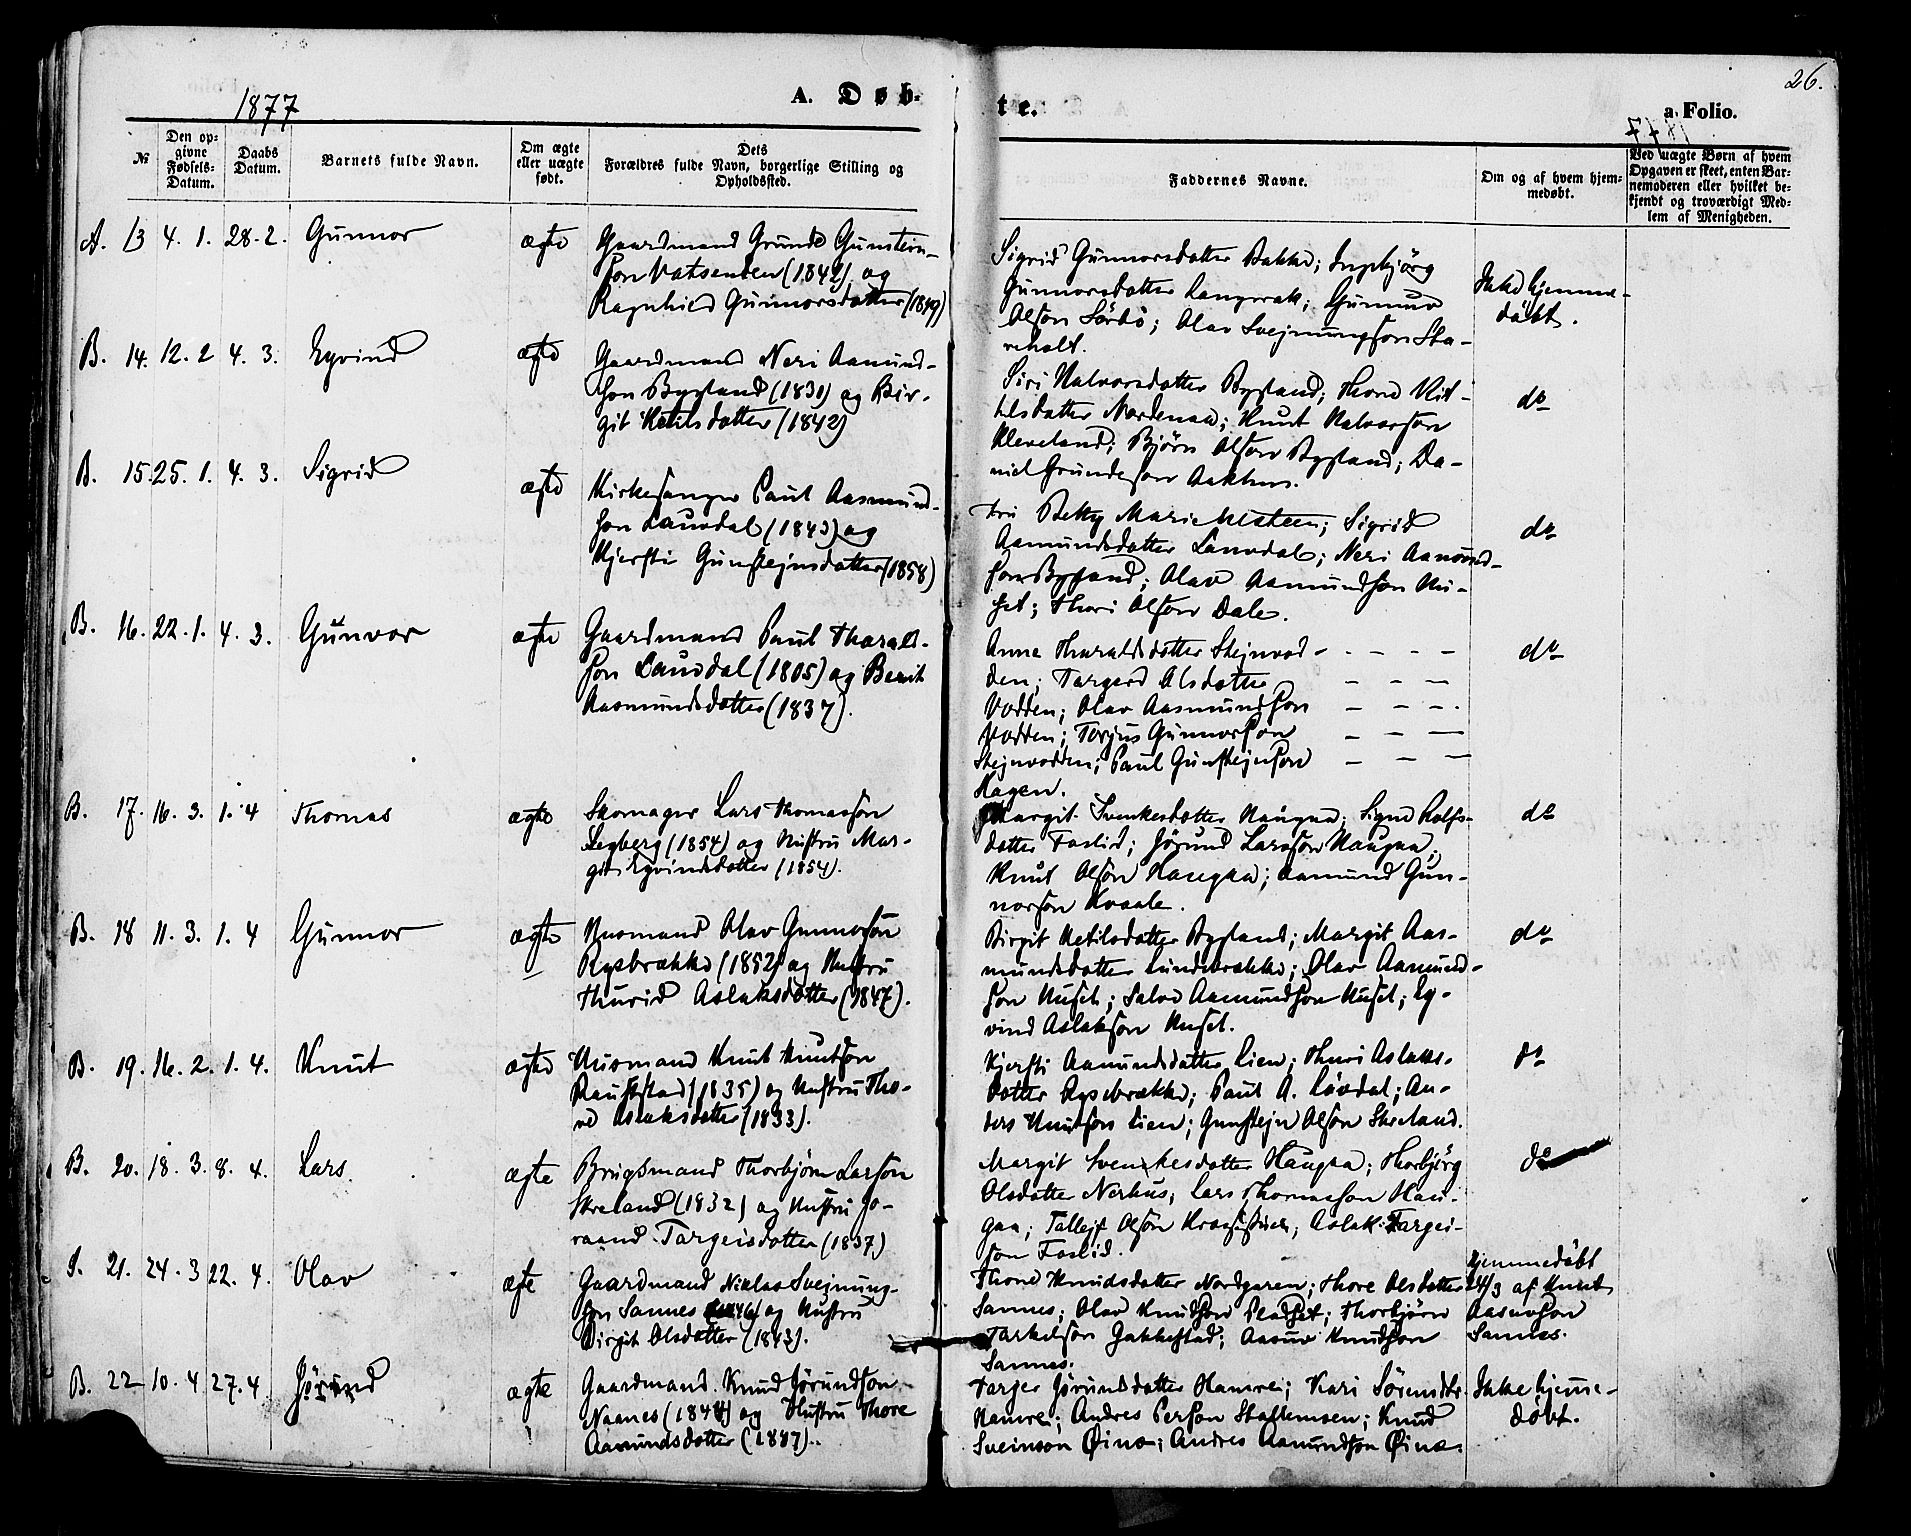 1877
A. Døb-
te.
a. Folio.
26.
1877
№
Den op-
givne
Fødsels-
Datum.
Daabs
Datum.
Barnets fulde Navn.
Om ægte
eller uægte
født.
Dets
Forældres fulde Navn, borgerlige Stilling og
Opholdssted.
Faddernes Navne.
Om og af hvem hjem-
medøbt.
Ved uægte Børn af hvem
Opgaven er skeet, enten Bar-
nemoderen eller hvilket be-
kjendt og troværdigt Med-
lem af Menigheden.
A. 13 4. 1. 28. 2. Gunnor ægte
Gaardmand Grunde Gunstein-
son Vatsenden (1842) og
Ragnhild Gunnorsdatter (1849)
Sigrid Gunnorsdatter Bakke; Ingebjörg
Gunnorsdatter Langerak; Gunnuv
Olson Sördö; Olav Svejnungson Sta-
veholt.
Ikke hjemme-
döbt.
B. 14. 12. 2 4. 3. Eyvind ægte
Gaardmand Neri Aamund-
son Bygland (1831) og Bir-
git Ketilsdatter (1842)
Siri Halvorsdatter Bygland; Thone Kit-
tilsdatter Nordenaa; Knut Halvorson
Kleveland; Björn Olson Bygland; Da-
niel Grundeson Aakhus.
do
B. 15. 25. 1. 4. 3. Sigrid ægte
Kirkesanger Paul Aasmund-
son Lauvdal (1843) og
Kjersti Gunstejnsdatter (1858)
Fru Betty Marie Alsteen; Sigrid
Aamundsdatter Lauvdal; Neri Aamund-
son Bygland; Olav Aamundson Hu-
set; Thori Olson Dale.
do
B. 16. 22. 1. 4. 3. Gunvor ægte
Gaardmand Paul Tharald-
son Lauvdal (1805) og Berit
Aasmundsdatter (1837).
Anne Tharaldsdatter Stejnvod-
den; Targerd Alsdatter
Vodden; Olav Aasmundson
Vodden; Torjus Gunnorson
Stejnvodden; Paul Gunstejnson
Hagen.
do
B. 17. 16. 3. 1. 4 Thomas ægte
Skomager Lars Thomasson
Legberg (1854) og Hustru Mar-
git Eyvindsdatter (1854).
Margit Svenkesdatter Haugaa; Signe Rolfs-
datter Faslid; Jörund Larsson Haugaa;
Knut Olson Haugaa; Aamund Gun-
norson Kvaale.
do
B. 18 11. 3. 1. 4 Gunnor ægte
Husmand Olav Gunnorson
Rysbrække (1852) og Hustru
Thurid Aslaksdatter (1847).
Birgit Ketilsdatter Bygland; Margit Aas-
mundsdatter Lundebrække; Olav Aamund-
son Huset; Salve Aamundson Huset; Ey-
vind Aslakson Huset.
do
B. 19. 16. 2. 1. 4. Knut ægte
Husmand Knut Knutson
Raustad (1835) og Hustru Tho-
ne Aslaksdatter (1833).
Kjersti Aamundsdatter Lien; Thuri Aslaks-
datter Rysebrække; Paul A. Lövdal; An-
ders Knutson Lien; Gunstejn Olson Skreland.
do
B. 20. 18. 3. 8. 4. Lars. ægte
Brugsmand Thorbjörn Larson
Skreland (1832) og Hustru Jo-
raand Targeisdatter (1837)
Margit Svenkesdatter Haugaa; Thorbjörg
Olsdatter Nerhus; Lars Thomasson Hau-
gaa; Tallejf Olson; Aslak Targei-
son Faslid.
do
S. 21. 24. 3 22. 4. Olav ægte
Gaardmand Niklas Svejnung-
son Sannes og Hustru
Birgit Olsdatter (1843).
Thone Knudsdatter Nordgaren; Thore Olsdatter
Sannes; Olav Knudson Pladset; Thorbjörn
Tarkelson Jakkestad; Aasuv Knudson
Sannes.
Hjemmedöbt
24/3 af Knut
Aasuvson
Sannes.
B. 22 10. 4 27. 4. Jörund ægte
Gaardmand Knud Jörundson
Naanes (1844) og Hustru Thore
Aamundsdatter (1847).
Targer Jörundsdatter Hamre; Kari Sörensdtr.
Hamre; Andres Person Stallemoen; Knud
Sveinson Öinæ; Andres Aamundson Öinæ.
Ikke hjemme-
döbt.